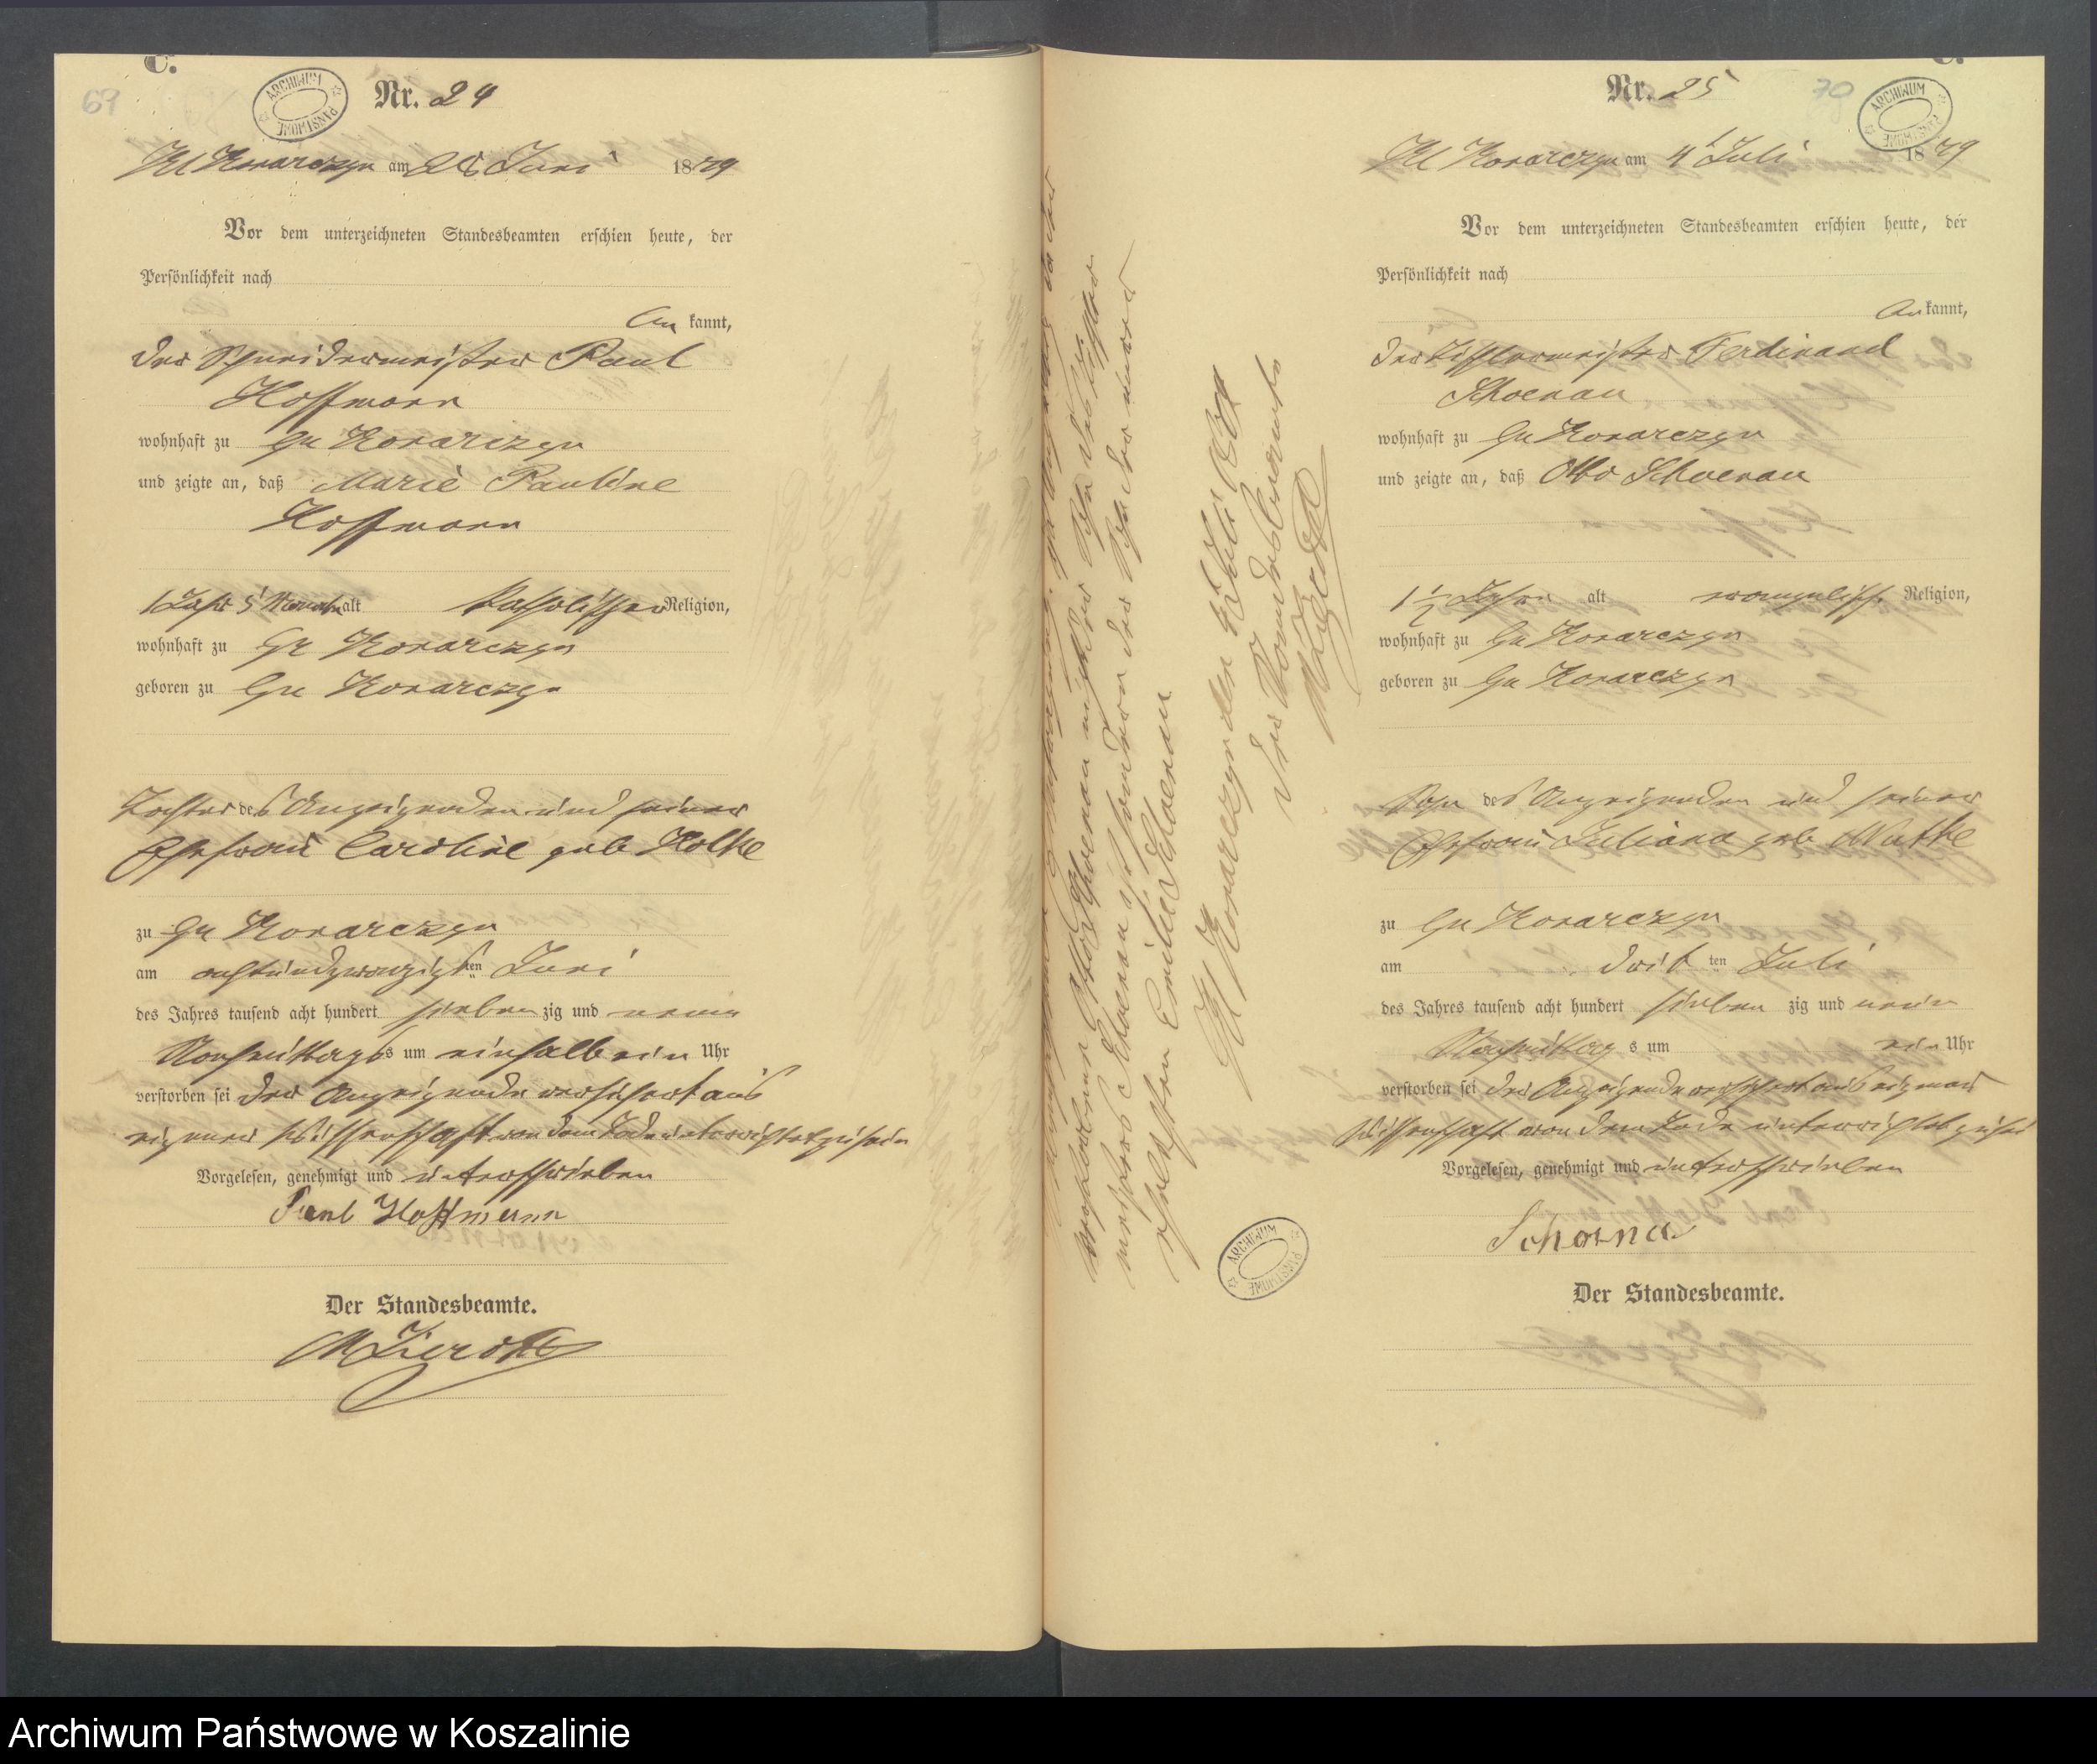 C.
69
ARCHIWUM PAŃSTWOWE
Nr. 24
Kl Konarczyn am 28 Juni 1879
Vor dem unterzeichneten Standesbeamten erschien heute, der
Persönlichkeit nach
be kannt,
der Schneidermeister Paul
Hoffmann
wohnhaft zu Gr Konarczyn
und zeigte an, daß Marie Pauline
Hoffmann
1 Jahr 5 Monate alt katholischer Religion,
wohnhaft zu Gr Konarczyn
geboren zu Gr Konarczyn
Tochter des Anzeigenden und seiner
Ehefrau Caroline geb Holke
zu Gr Konarczyn
am achtundzwanzigsten Juni
des Jahres tausend acht hundert sieben zig und neun
Nachmittags um einhalb ein Uhr
verstorben sei der Anzeigende versichert aus
eigener Wissenschaft von dem Tode unterrichtet zu sein
Vorgelesen, genehmigt und unterschrieben
Paul Hoffmann
Der Standesbeamte.
C.
70
ARCHIWUM PAŃSTWOWE
Nr. 25
Kl Konarczyn am 4 Juli 1879
Vor dem unterzeichneten Standesbeamten erschien heute, der
Persönlichkeit nach
be kannt,
der Tischlermeister Ferdinand
Schoenau
wohnhaft zu Gr Konarczyn
und zeigte an, daß Otto Schoenau
1 1/2 Jahr alt evangelisch Religion,
wohnhaft zu Gr Konarczyn
geboren zu Gr Konarczyn
Sohn des Anzeigenden und seiner
Ehefrau Juliana geb Mutke
zu Gr Konarczyn
am dritten Juli
des Jahres tausend acht hundert sieben zig und neun
Nachmittag s um ein Uhr
verstorben sei der Anzeigende versichert aus eigener
Wissenschaft von dem Tode unterrichtet zu sein
Vorgelesen, genehmigt und unterschrieben
Schoenau
Der Standesbeamte.
Emilie Schoenau
Kl Konarczyn den 4 Juli 1879
Der Standesbeamte
ARCHIWUM PAŃSTWOWE
Archiwum Państwowe w Koszalinie